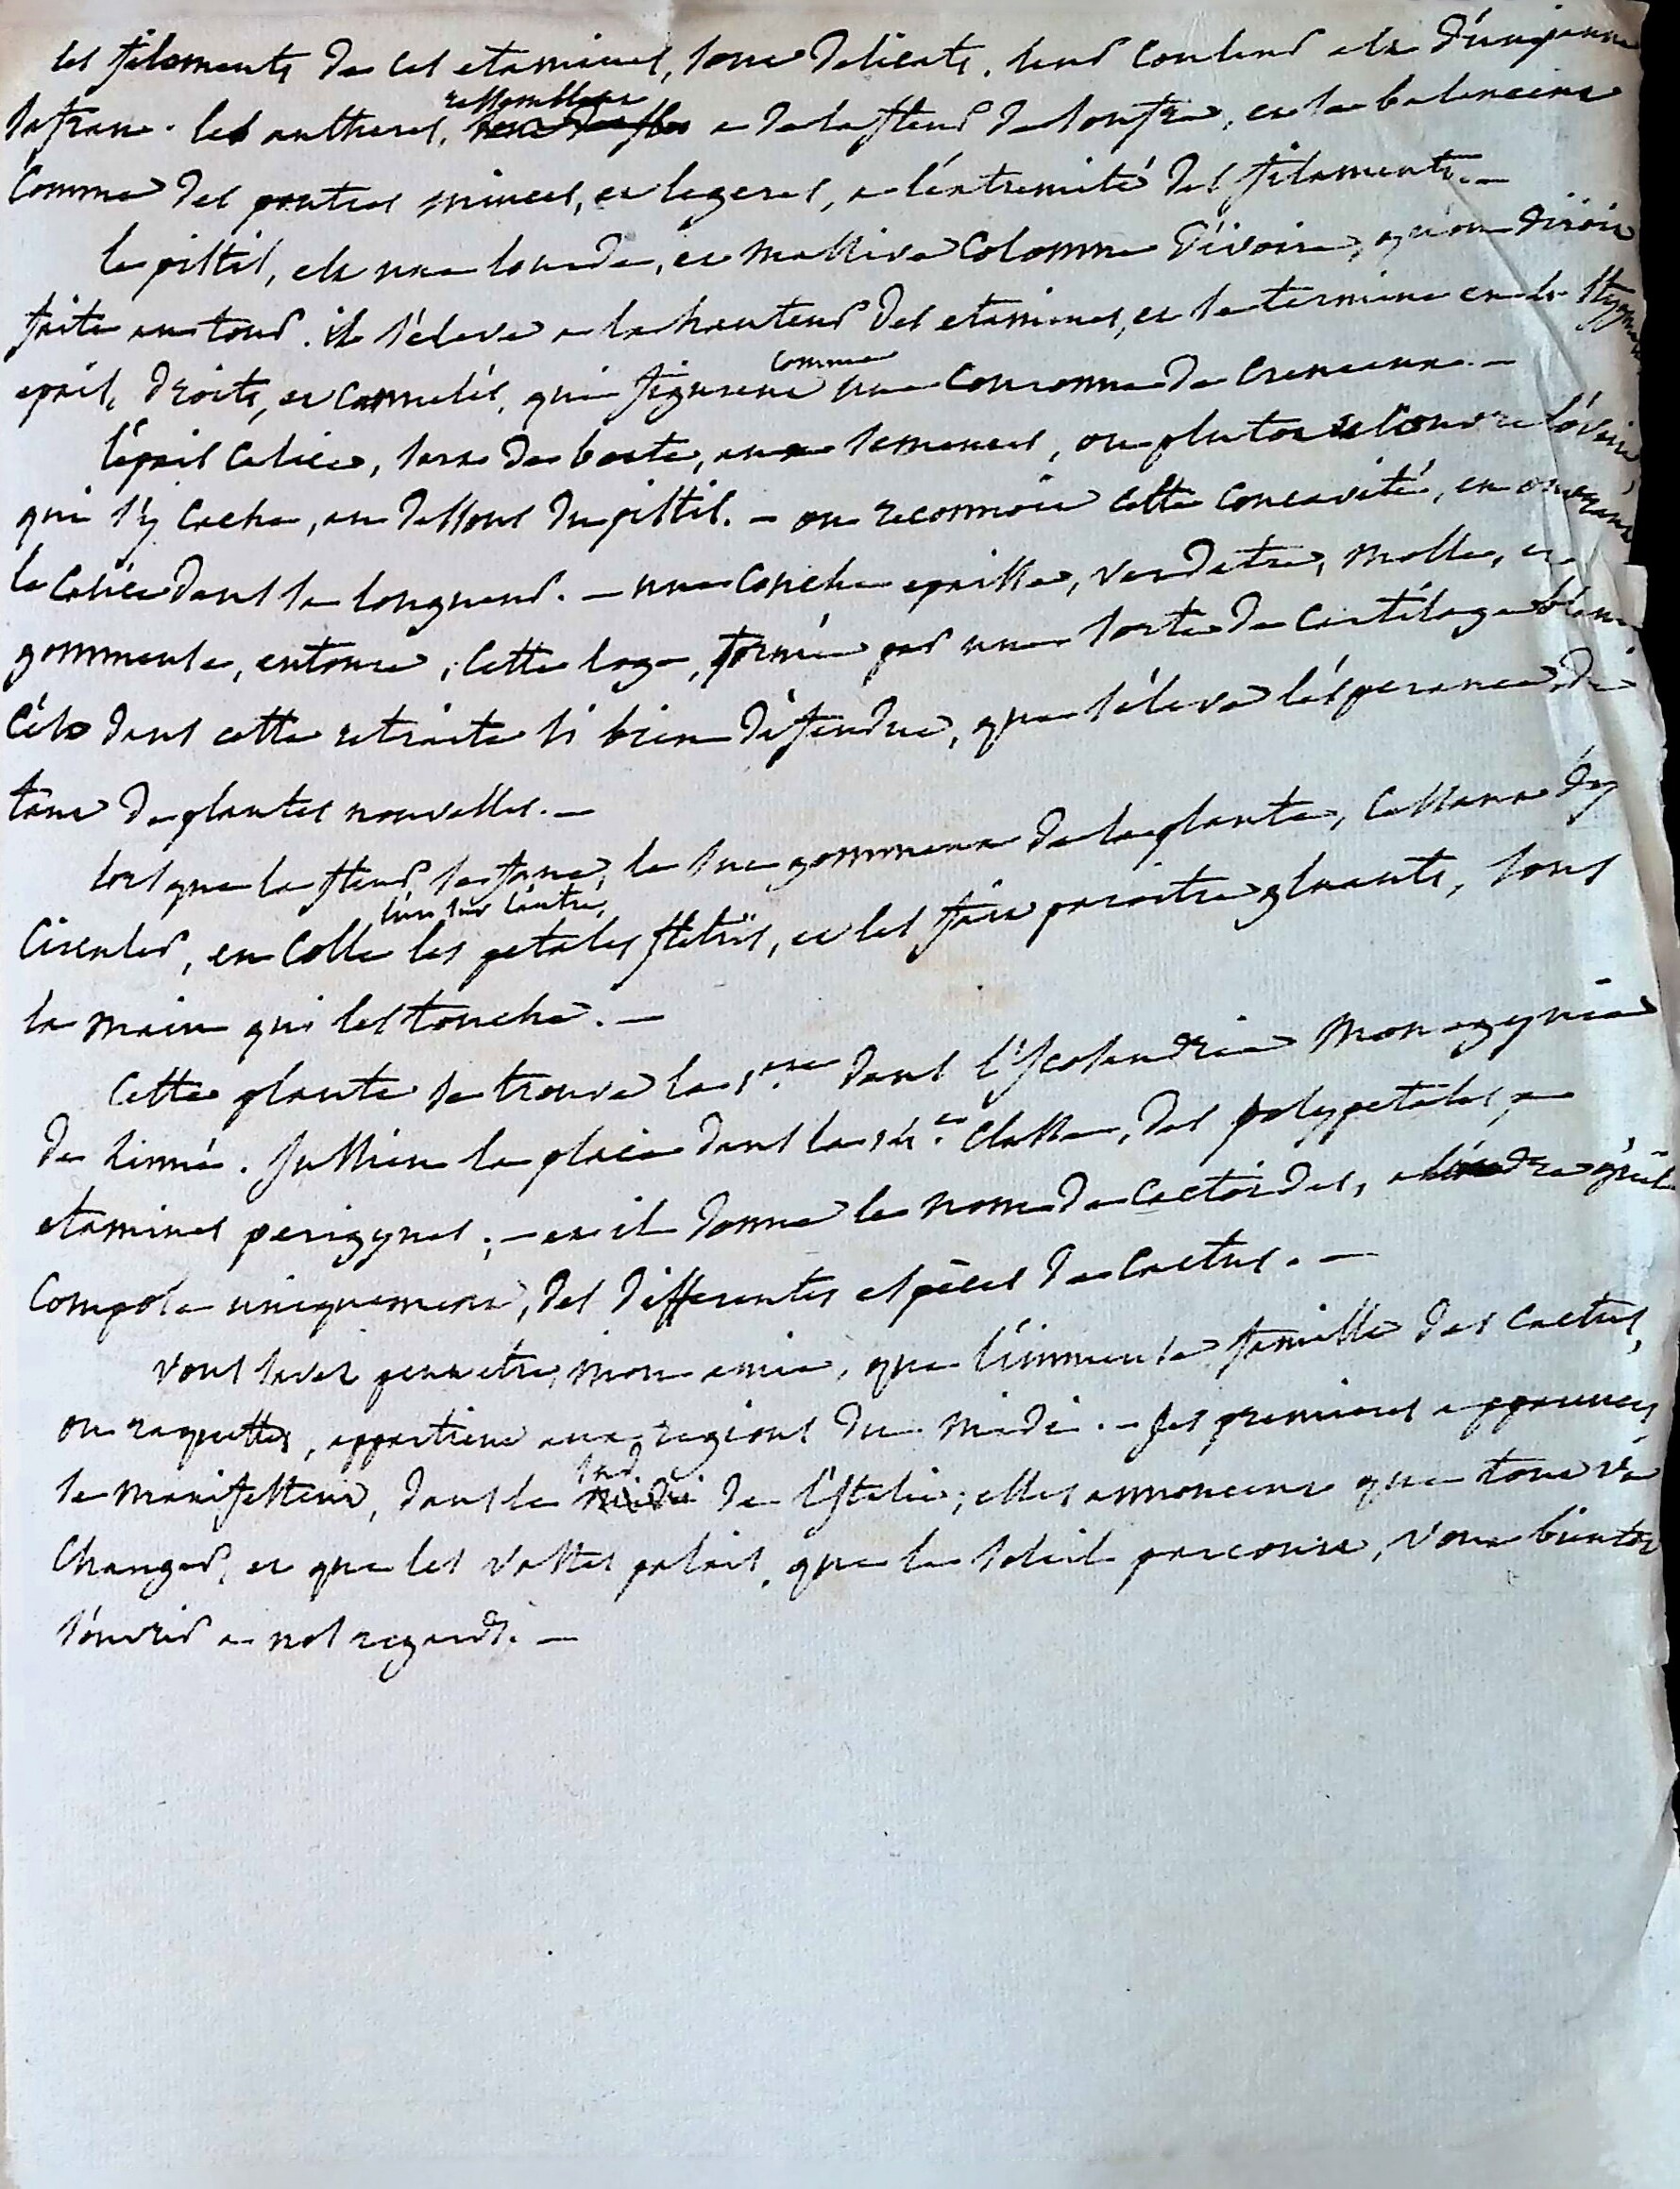 les filaments de ces etamines, sont delicats. leur couleur est d'un jaune
safran. les antheres, ressemblent a de la fleur de soufre, et se balancent
comme des pontres minces, et legeres, a l'extremité des filaments. —
le pistil, est une lourde, et massive colomne d'ivoire, qu'on diroit
faite au tour. il s'eleve a la hauteur des etamines, et se termine en 6 stygmates
epais, droits, et cannelés, qui figurent comme une couronne de creneaux. —
l'épais calice, sert de boete, aux semences, ou plutost recouvre l'ovaire
qui s'y cache, au dessous du pistil. — on reconnoit cette concavité, en ouvrant
le calice dans sa longueur. — une couche epaisse, verdatre, molle, et
gommeuse, entoure, cette loge, formée par une sorte de cartilage blanc.
c'est dans cette retraite si bien défendue, que s'éleve l'ésperance de
tant de plantes nouvelles. —
lors que la fleur, se fane, le suc gommeux de la plante, cessant d'y
circuler, en colle les petales fletris, l'un sur l'autre, et les fait paroitre gluants, sous
la main qui les touche. —
cette plante se trouve la 1ere dans l'Icosandrie monogynie
de Linné. Jussieu la place dans la 14.e classe, des polypetales, a
etamines perigynes; — et il donne le nom de cactoïdes, a l'ordre qu'il
compose uniquement, des differentes espèces de cactus. —
vous savez peut etre, mon amie, que l'immense famille des cactus,
ou raquettes, appartient aux regions du midi. — ses premieres apparences
se manifestent, dans le sud de l'Italie; elles annoncent que tout va
changer, et que les vastes palais, que le soleil parcourt, vont bientôt
s'ouvrir a nos regards. —